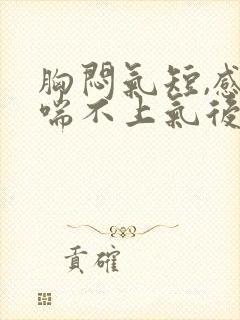 胸悶氣短,感
喘不上氣後
貢確